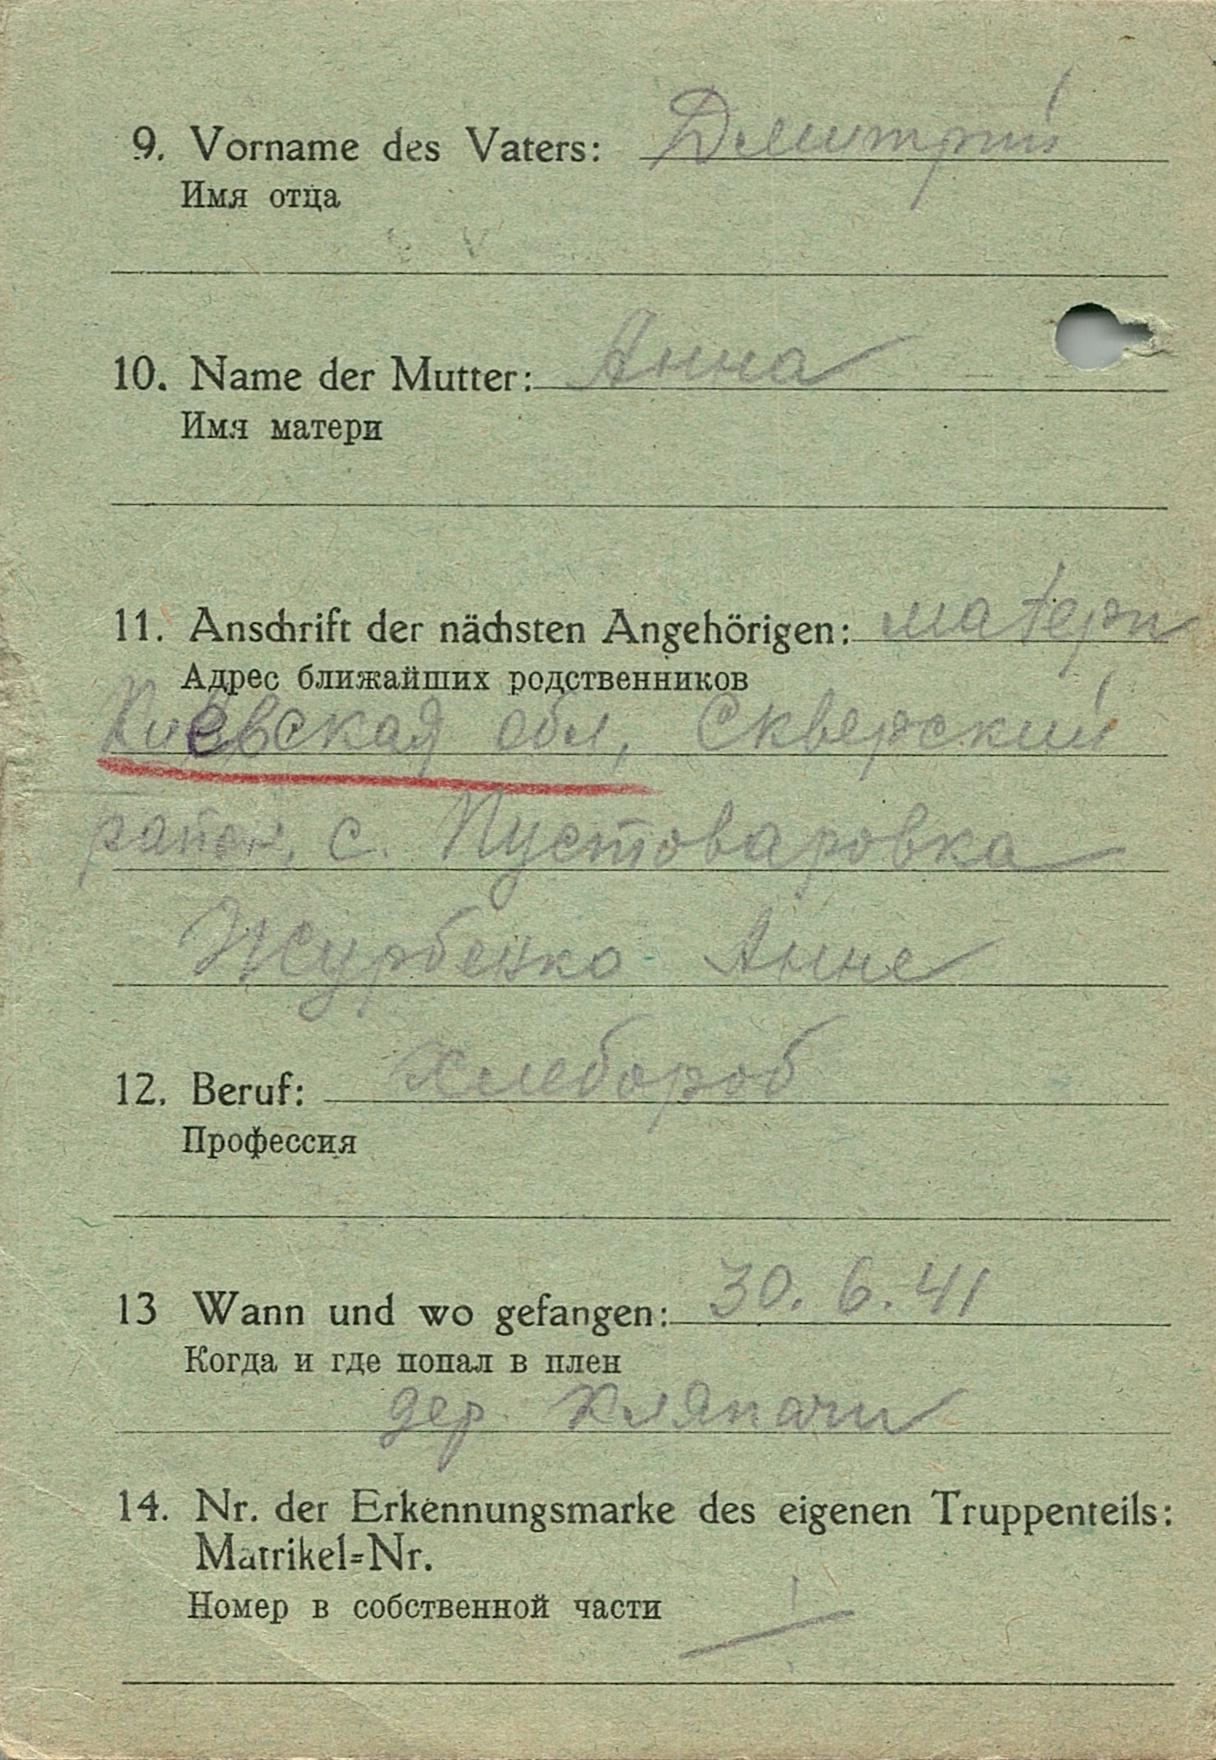 9. Vorname des Vaters: Дмитрий
Имя отца
10. Name der Mutter: Анна
Имя матери
11. Anschrift der nächsten Angehörigen: матери
Адрес ближайших родственников
Киевская обл, Скверский
район, с. Пустоваровка
Журбенко Анне
12. Beruf: хлебороб
Профессия
13 Wann und wo gefangen: 30. 6. 41
Когда и где попал в плен
дер. Кляпачи
14. Nr. der Erkennungsmarke des eigenen Truppenteils:
Matrikel=Nr.
Номер в собственной части